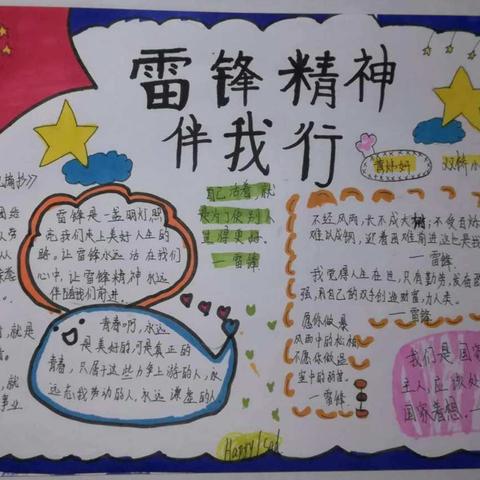 雷锋精神
伴我行
双桥小
摘抄》
雷锋是一盏明灯照
亮我们走上美好人生的
路,让雷锋永远活在我们
心中,让雷锋精神永远
伴随我们前进.
自己活着,就
是为了使别人
过得更好.
—雷锋
不经风雨,长不成大树;不受百
难以成钢,迎着困难前进,这也是我
—雷锋
我觉得人生在世,只有勤劳,发奋图
强,用自己的双手创造财富,为人类
—雷锋
愿你做暴
风雨中的松柏
不愿你做温
室中的弱苗.
—雷锋
青春啊,永远
是美好的,可是真正的
青春,只属于这些力争上游的人,永
远忘我劳动的人,永远谦虚的人
我们是国家
主人,应该处
国家着想.
就是
就
事业
Happy